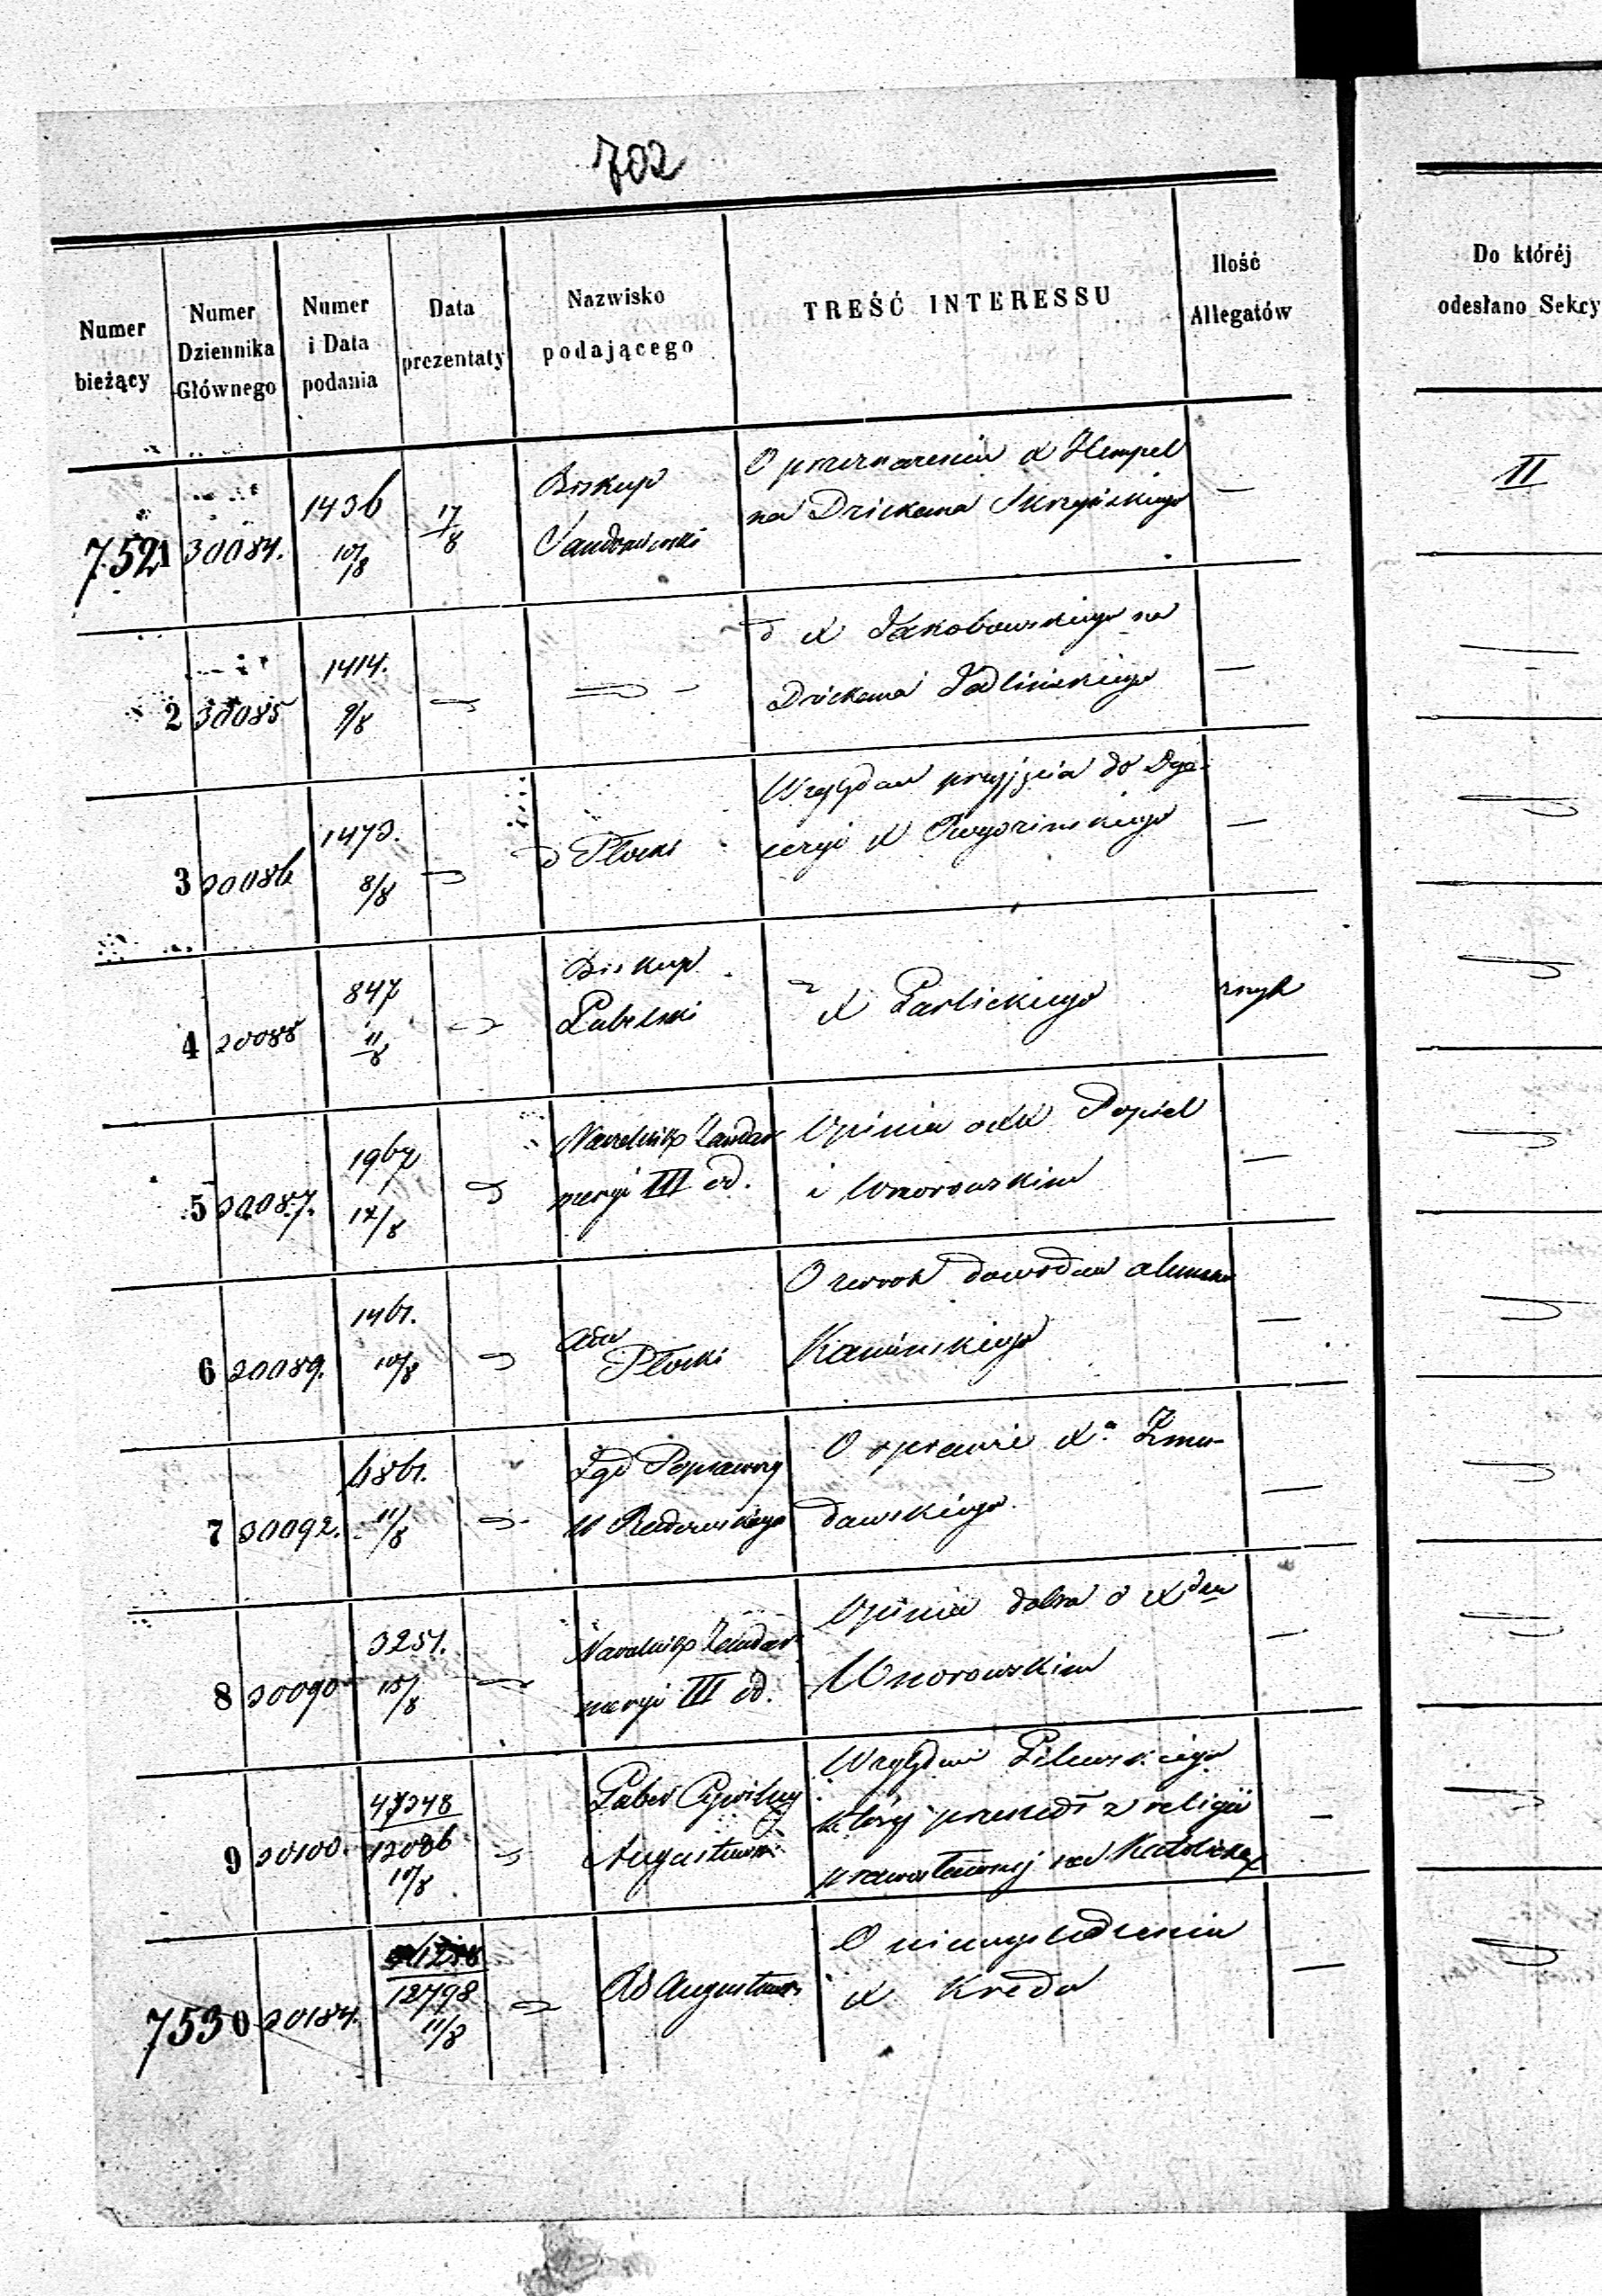 702
Numer bieżący
Numer Dziennika Głównego
Numer i Data podania
Data prezentaty
Nazwisko podającego
TREŚĆ INTERESSU
Ilość Allegatów
Do któréj
odesłano Sekcy
7521 30084. 1436 10/8 17/8
Biskup
Sandomierski
O przeznaczeniu X Hempel
na Dziekana
—
II
2 30085 1414. 9/8
X Jakobowskiego na
Dziekana Jedlińskiego
—
3 30086 1473. 8/8
d Płocki
Względem przyjęcia do Dye-
cezyi X
—
4 30088 847 11/8
Biskup
Lubelski
X Garlickiego
5 30087. 1967 12/8
Naczelnik Żandar
meryi III od.
Opinia o XX Popiel
i Wnorowskim
—
6 30089. 1461. 10/8
Adm
Płocki
O zwrot dowodów alumna
Kamińskiego
—
7 30092. 11/8
Sąd Poprawczy
W Radomskiego
O sprawie Xa Żmu-
dawskiego
—
8 30090 3251. 15/8
Naczelnik Żandar
meryi III od.
Opinia dobra o X
Wnorowskim
—
9 30100. 12086 10/8
Guber Cywilny
Augustowski
Względem
który przeszedł z religii
prawosławnej na Katolicką
—
7530 30184. 12798 11/8
Rd Augustows
O niewyśledzeniu
X Kreda
—